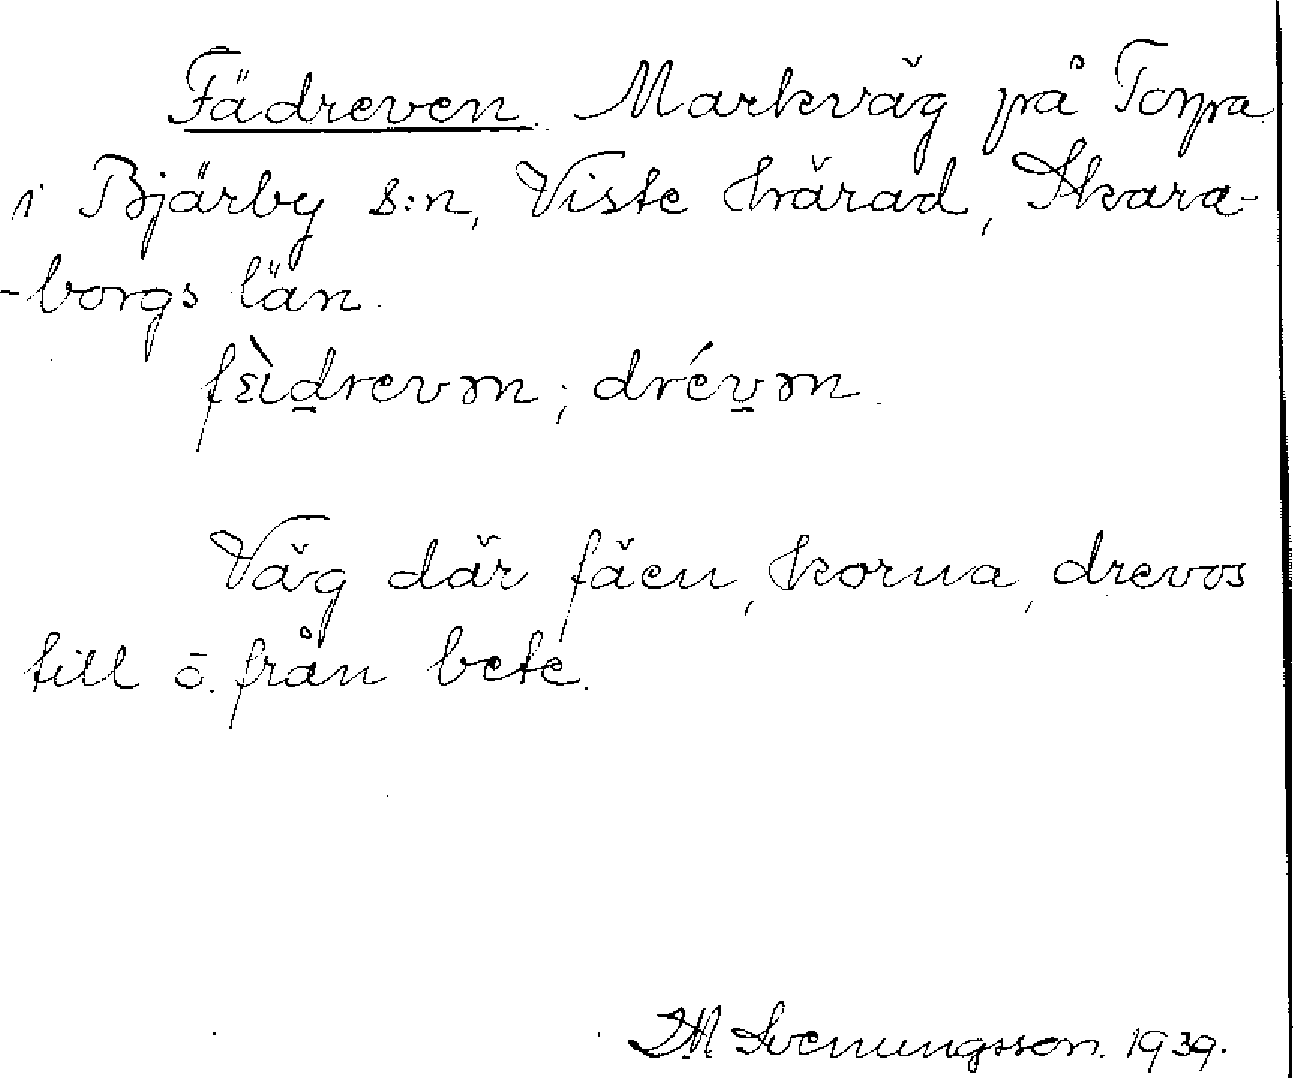 Fädreven. Markväg på Torpa
i Bjärby s:n, Viste härad, Skara-
-borgs län.
fɛ̀idrevən; drévən.
Väg där fäen, korna, drevos
till o. från bete.
Svenungsson. 1939.